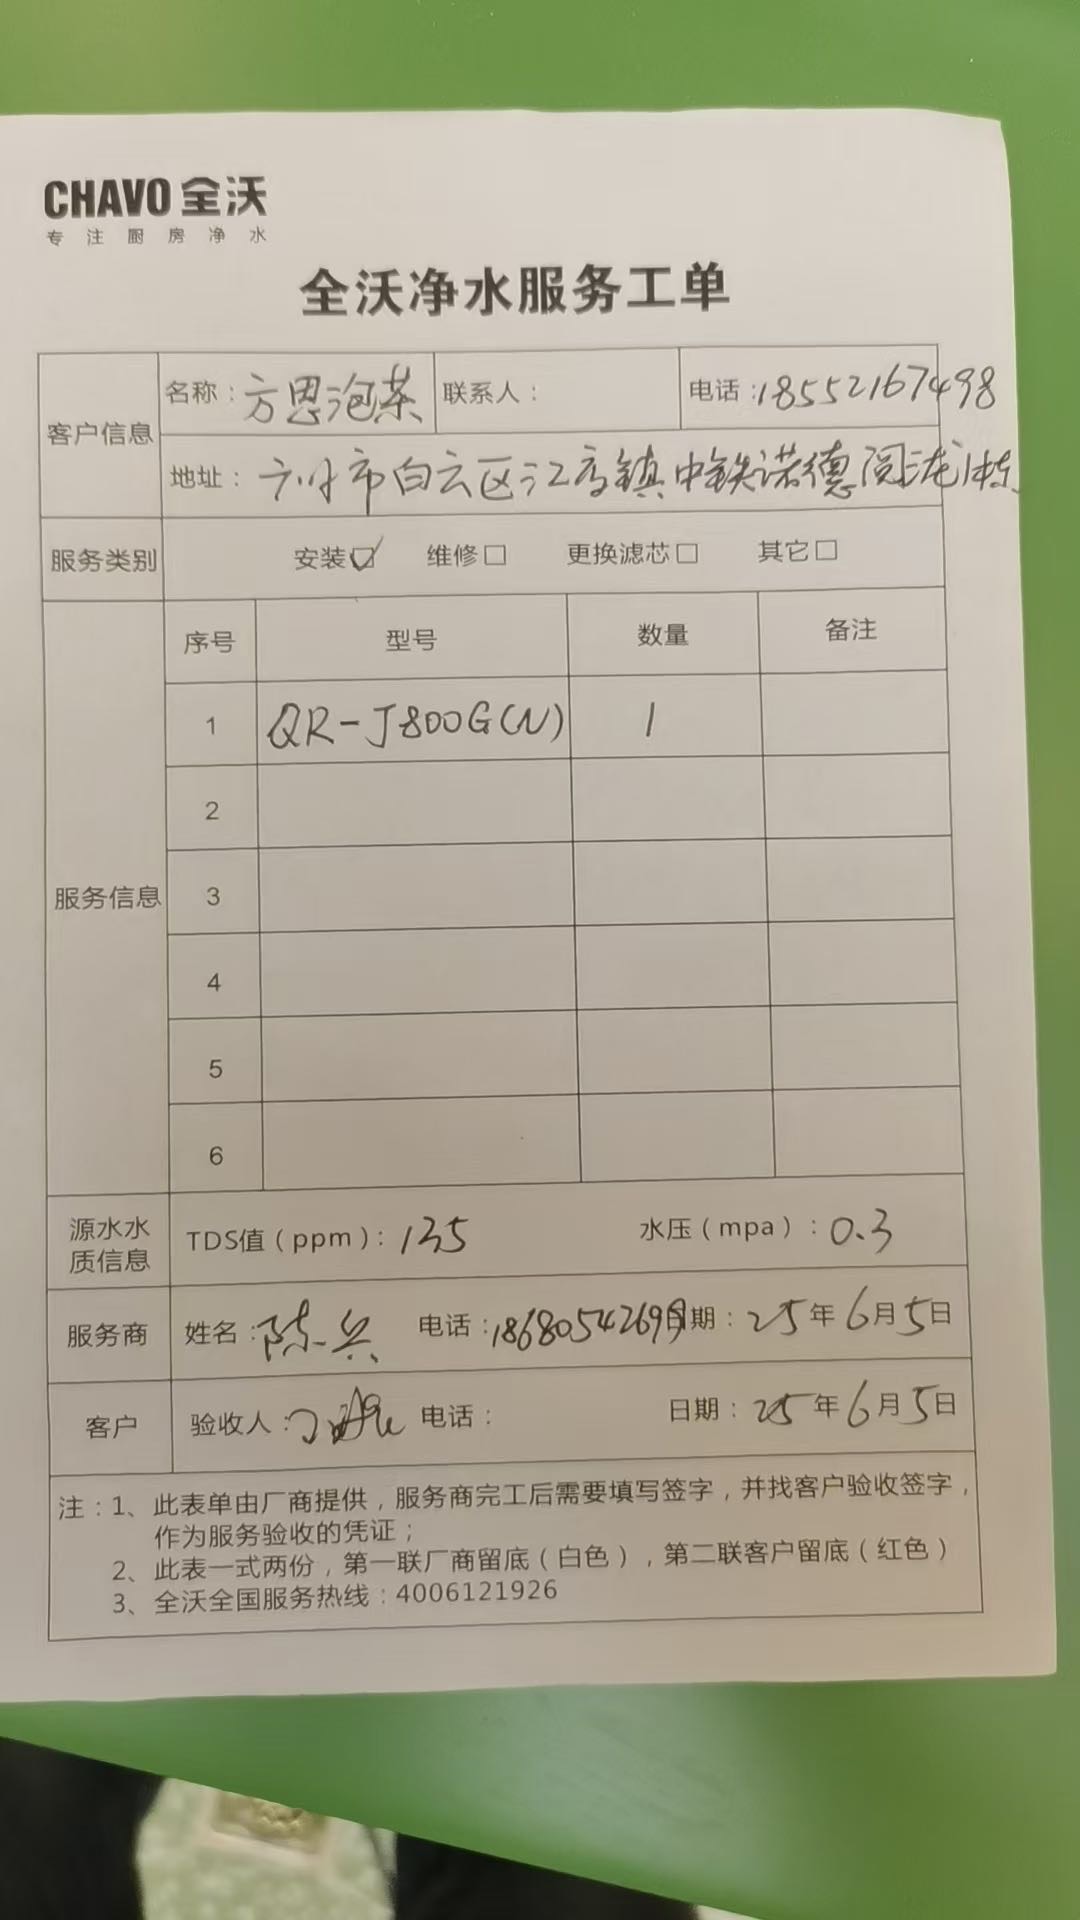 CHAVO 全沃
专注厨房净水
全沃净水服务工单
客户信息
名称：方思泡茶 联系人： 电话：18552167498
地址：广州市白云区江高镇中铁诺德阅泷1栋
服务类别 安装☑ 维修□ 更换滤芯□ 其它□
服务信息
序号 型号 数量 备注
1 QR-J800G(N) 1
2
3
4
5
6
源水水质信息
TDS值（ppm）：135 水压（mpa）：0.3
服务商 姓名：陈兵 电话：1868054269 日期：25年6月5日
客户 验收人： 电话： 日期：25年6月5日
注：1、此表单由厂商提供，服务商完工后需要填写签字，并找客户验收签字，
作为服务验收的凭证；
2、此表一式两份，第一联厂商留底（白色），第二联客户留底（红色）
3、全沃全国服务热线：4006121926